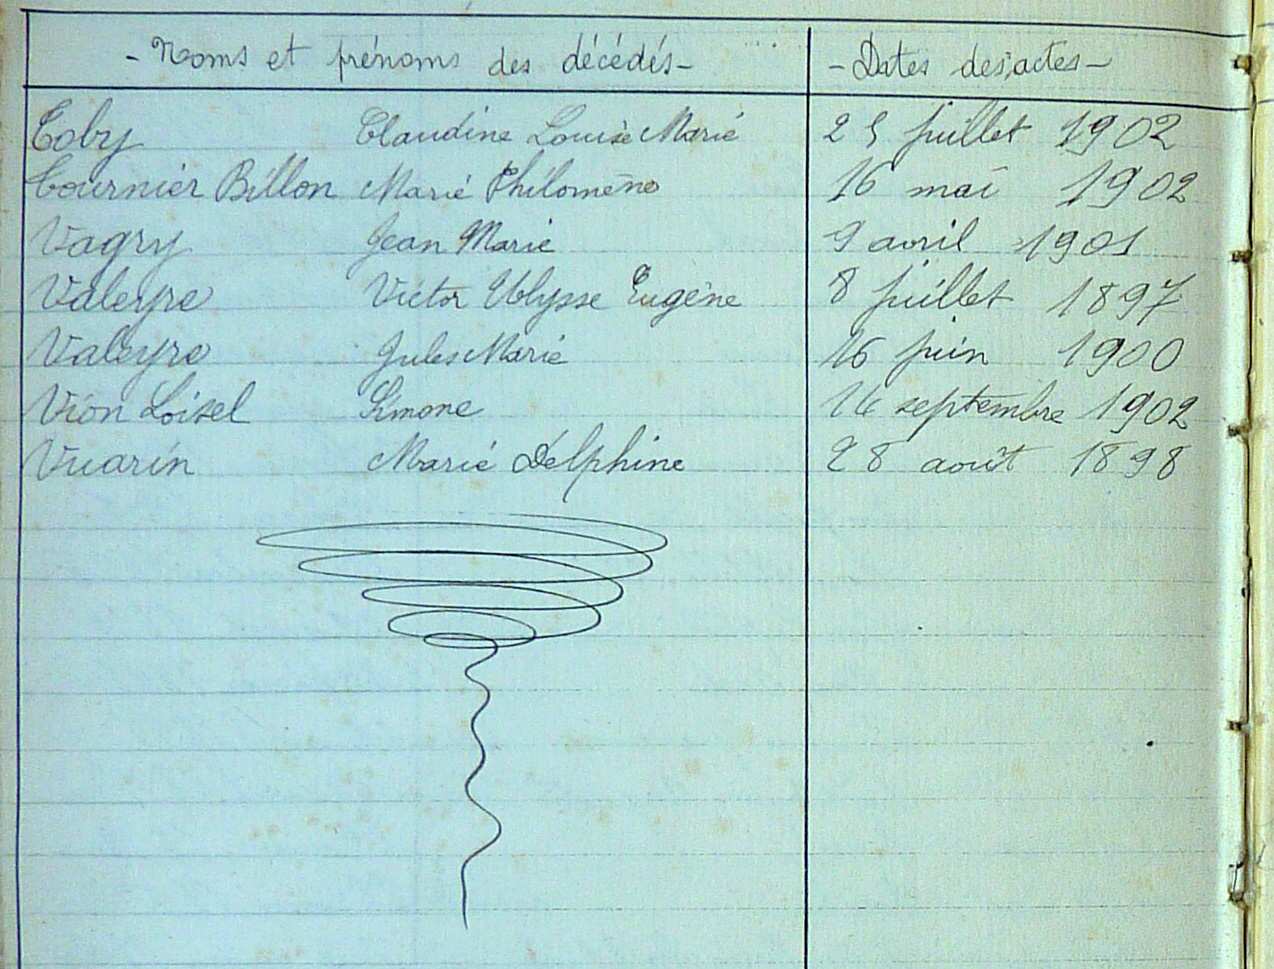 - Noms et prénoms des décédés - - Dates des actes -
Toby Claudine Louise Marie 25 juillet 1902
Tournier Billon Marie Philomène 16 mai 1902
Vagry Jean Marie 9 avril 1901
Valeyre Victor Ulysse Eugène 8 juillet 1897
Valeyre Jules Marie 16 juin 1900
Vion Loisel Simone 14 septembre 1902
Vuarin Marie Delphine 28 août 1898